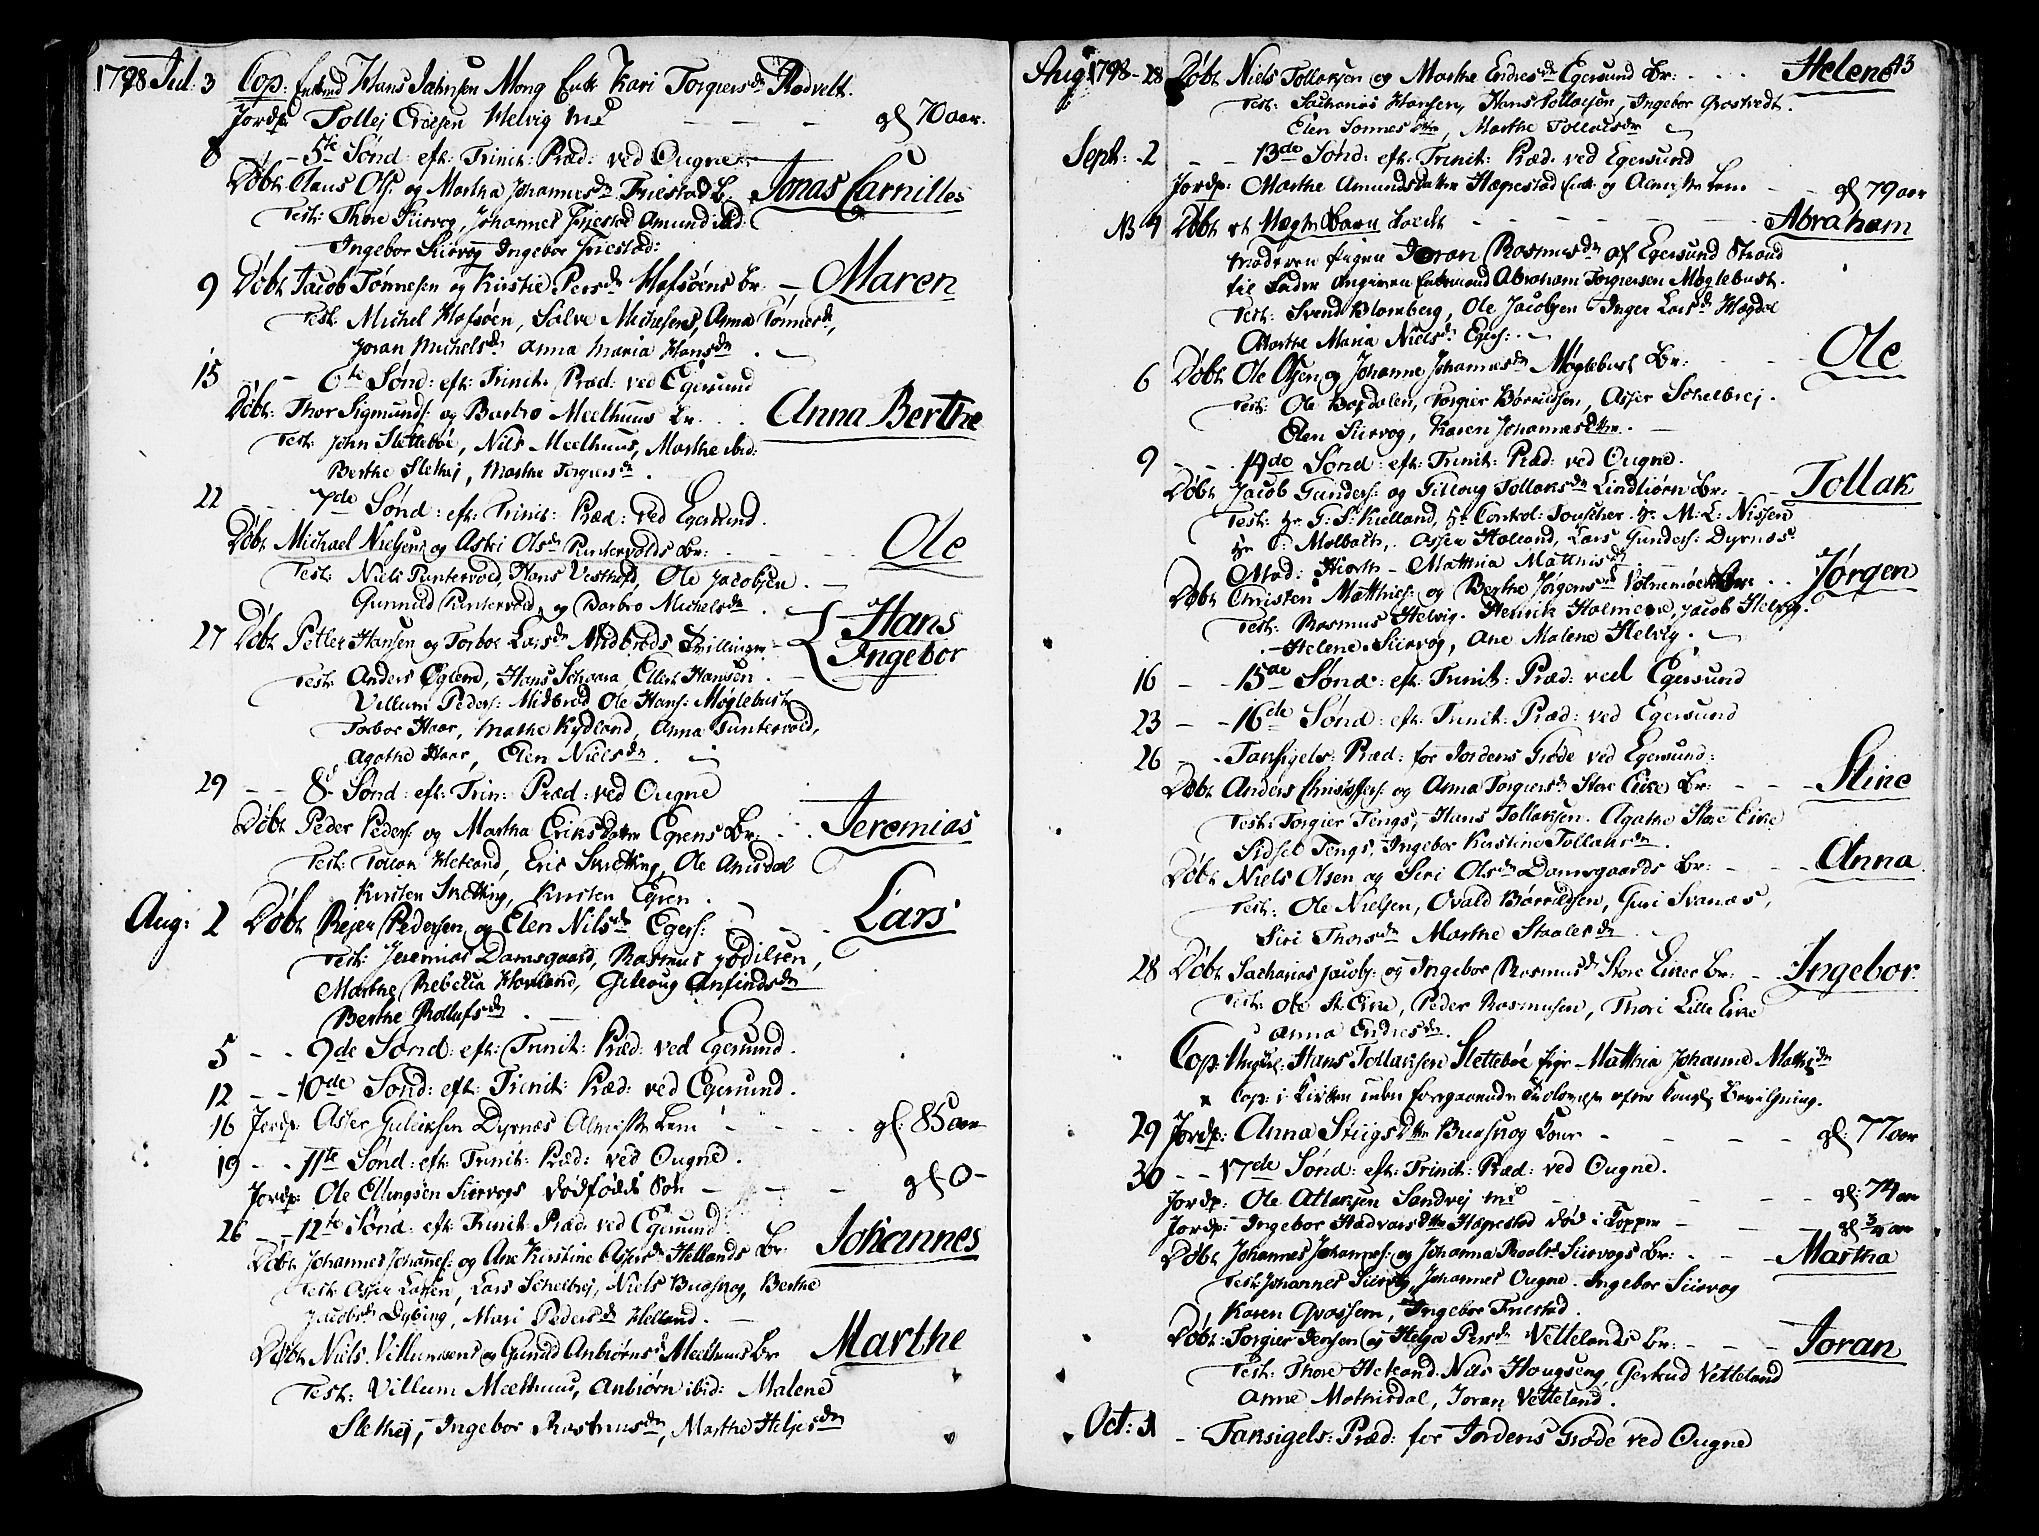 1798 Jul: 3 Cop: Enkmd Hans Jahnsen Mong Enk: Kari Torgiersdr Rødvelt.
Jordp: Tollej Ericsen Helvig Md - - - gl 70 aar.
8 - - 5te Sønd: eft: Trinit: Præd: ved Ougne.
Døbt Claus Ols: og Martha Johannesdr Friestad B. Jonas Carnilles
Test: Thore Siirvog, Johannes Friestad Amund ibd:
Ingebor Siirvog Ingebor Friestad:
9 Døbt Jacob Tønnesen og Kirstie Persdr Hofsøens Br: - Maren
Test: Michel Hofsøen, Salve Michelsens, Anna Tønnesd,
Joran Michelsdr Anna Maria Hansdr.
15 - 6te Sønd: eft: Trinit: Præd: ved Egersund
Døbt: Thor Sigmunds: og Barbro Meelhuus Br: . . . Anna Berthe
Test: John Slettebøe, Nils Meelhuus, Marthe ibid:
Berthe Slethej, Marthe Torgiersdr.
22 - - 7de Sønd: eft: Trinit: Præd: ved Egersund.
Døbt Michael Nielsen og Aski Olsdr Puntervolds Br: - - - Ole
Test: Niels Puntervold, Hans Vesthof, Ole Jacobsen.
Gunnild Puntervold, og Barbro Michelsdr.
27 Døbt Petter Hansen og Torbor Larsdr Midbrøds Tvillinger - { Hans
Ingebor
Test: Anders Øglend, Hans Schaara, Ellert Hansen.
Villum Peders: Midbrød Ole Hans: Møglebust
Torbor Haar, Mathe Kydland, Anna Puntervold,
Agathe Haar, Elen Nielsdr.
29 - - 8de Sønd: eft: Trin: Præd: ved Ougne
Døbt Peder Peders: og Martha Eriksdatter Egrens Br: . . Jeremias
Test: Tollan Hetland, Eric Skretting, Ole Anisdal
Kirsten Skretting, Kirsten Egren.
Aug: 2 Døbt Rejer Pedersen og Elen Nilsdr Egers: - - Lars
Test: Jeremias Damsgaard, Rasmus Bodilsen,
Marthe Rebecca Hovland, Gitloug Anfindsdr
Berthe Rollufsdr.
5 - - 9de Sønd: eft: Trinit: Præd: ved Egersund.
12 - - 10de Sønd: eft: Trinit: Præd: ved Egersund.
16 Jordp: Asser Guliksen Dyrnæs Almisse Lem - - - gl: 85 aar
19 - - 11te Sønd: eft: Trinit: Præd: ved Ougne.
Jordp: Ole Ellingsen Siirvogs dødfødde Søn - - - gl 0 -
26 - - 12te Sønd: eft: Trinit: Præd: ved Egersund
Døbt Johannes Johannes: og Ane Kirstine Assersdr Hellands Br: Johannes
Test: Asser Larsen, Lars Schelbrej, Niels Buchog, Berthe
Jacobsdr Dybing, Mari Pedersdr Helland.
Døbt Niels Villumsens og Gunild Anbiørnsd Meelhuus Br Marthe
Test: Villum Meelhuus, Anbiørn ibid: Malene
Slethej, Ingebor Rasmusdr, Marthe Heljesdr
Aug 1798 - 28 Døbt Niels Tollaksen og Marthe Endresdr Egersund Br: . . . Helene 43
Test: Sacharias Hansen, Hans Tollacsen, Ingebor Grostvedt.
Elen Tonnesdtr, Marthe Tollacsdr
Sept: 2 - - 13de Sønd: eft: Trinit: Præd: ved Egersund
Jordp: Marthe Amundsdatter Hæpestad Enk: og Almisse Lem - - gl 79 aar
NB 4 Døbt et Uægte Barn kaldt - - - - Abraham
Moderen Pigen Joran Rasmusdr af Egersund Strand
til Fader Angiven Enkemand Abraham Torgiersen Møglebust.
Test: Svend Blomberg, Ole Jacobsen Inger Larsdr Hægdal
Marthe Maria Nielsd: Egers:
6 Døbt Ole Olsen og Johanne Johannesdr Møglebust Br: - - Ole
Test: Ole Bogdalen, Torgier Børrildsen, Asser Schelbrej.
Elen Siirvog, Karen Johannesdtr.
9 - - 14de Sønd: eft: Trinit: Præd: ved Ougne.
Døbt Jacob Gunders: og Gitloug Tollaksdr Lindtiørn Br: - - Tollak
Test: Hr G: S: Kielland, Hr Control: Touscher. Hr M: L: Nissen
Hr C: Malbath, Asser Holland, Lars Gunders: Dyrnæs.
Mad: Hiorth - Matthia Matthisdr
Døbt Christen Matthies: og Berthe Jørgensd Volnemøe Br . . Jørgen
Test: Rasmus Helvig. Henrik Holmene, Jacob Helvig.
- Helene Siirvog, Ane Malene Helvig.
16 - - 15de Sønd: eft: Trinit: Præd: ved Egersund
23 - - 16de Sønd: eft: Trinit: Præd: ved Egersund
26 - - Taksigels: Præd: for Jordens Grøde ved Egersund:
Døbt Anders Christophers: og Anna Torgiersdr Store Eicke Br: - - Stine
Test: Torgier Tengs, Hans Tollaksen. Agathe Store Eicke
Sidsel Tengs. Ingebor Kirstine Tollaksdr.
Døbt Niels Olsen og Siri Olsdr Damsgaards Br: - - - Anna
Test: Ole Nielsen, Ovald Børrildsen, Guri Svanæs,
Siri Thorsdr Marthe Staalesdr
28 Døbt Sacharias Jacobs: og Ingebor Rasmusdr Store Eicke Br: - Ingebor.
Test: Ole St: Eicke, Peder Rasmusen, Thori Lille Eicke
Anna Endresdr.
Cop: Ungkarl: Hans Tollaksen Slettebøe Pige Matthia Johanne Mathisdr
Cop: i Kirken uden foregaaende Trolovelse efter Kongl: Bevilgning.
29 Jordp: Anna Stiigsdtr Buchog Kone - - - gl: 77 aar
30 - - 17de Sønd: eft: Trinit: Præd: ved Ougne.
Jordp: Ole Atlaksen Sandvej Md - - - gl: 74 aar
Jordp: Ingebor Hadvarsdtr Hæpestad død i Kopper - - gl 3/4 aar
Døbt Johannes Johannes: og Johanna Roalsd Siirvogs Br: - - Martha
Test: Johannes Siirvog, Johannes Ougne. Ingebor Siirvog
Karen Qvassem, Ingebor Friestad.
Døbt: Torgier Jensen og Helga Persdr Vettelands Br: - - - Joran
Test: Thore Hetland. Nils Hougseng, Gertrud Vetteland
Anne Mathisdal, Joran Vetteland.
Oct: 31 - Taksigels: Præd: for Jordens Grøde ved Ougne